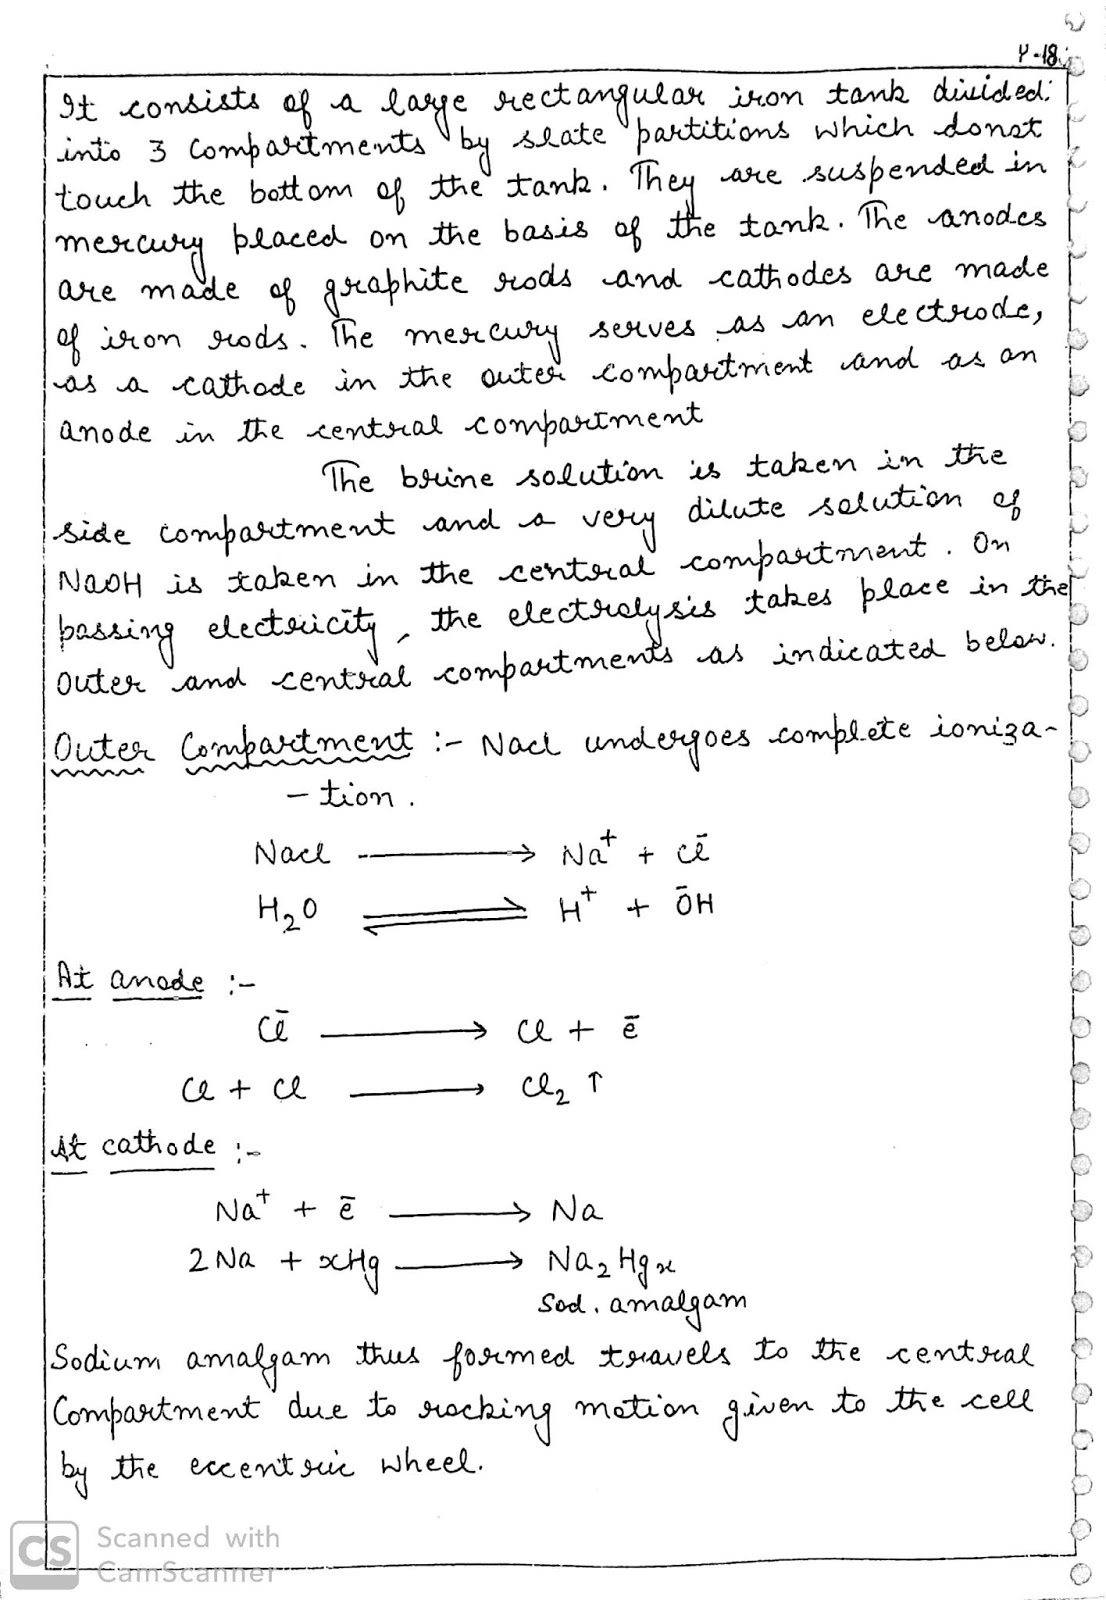 Y-18
It consists of a large rectangular iron tank divided
into 3 compartments by slate partitions which donot
touch the bottom of the tank. They are suspended in
mercury placed on the basis of the tank. The anodes
are made of graphite rods and cathodes are made
of iron rods. The mercury serves as an electrode,
as a cathode in the outer compartment and as an
anode in the central compartment
The brine solution is taken in the
side compartment and a very dilute solution of
NaOH is taken in the central compartment. On
passing electricity, the electrolysis takes place in the
outer and central compartments as indicated below.
Outer Compartment :- Nacl undergoes complete ioniza-
-tion.
Nacl ⟶ Na⁺ + Cl⁻
H₂O ⇌ H⁺ + ŌH
At anode :-
Cl⁻ ⟶ Cl + ē
Cl + Cl ⟶ Cl₂ ↑
At cathode :-
Na⁺ + ē ⟶ Na
2 Na + xHg ⟶ Na₂Hgₓ
Sod. amalgam
Sodium amalgam thus formed travels to the central
Compartment due to rocking motion given to the cell
by the eccentric wheel.
CS Scanned with
CamScanner